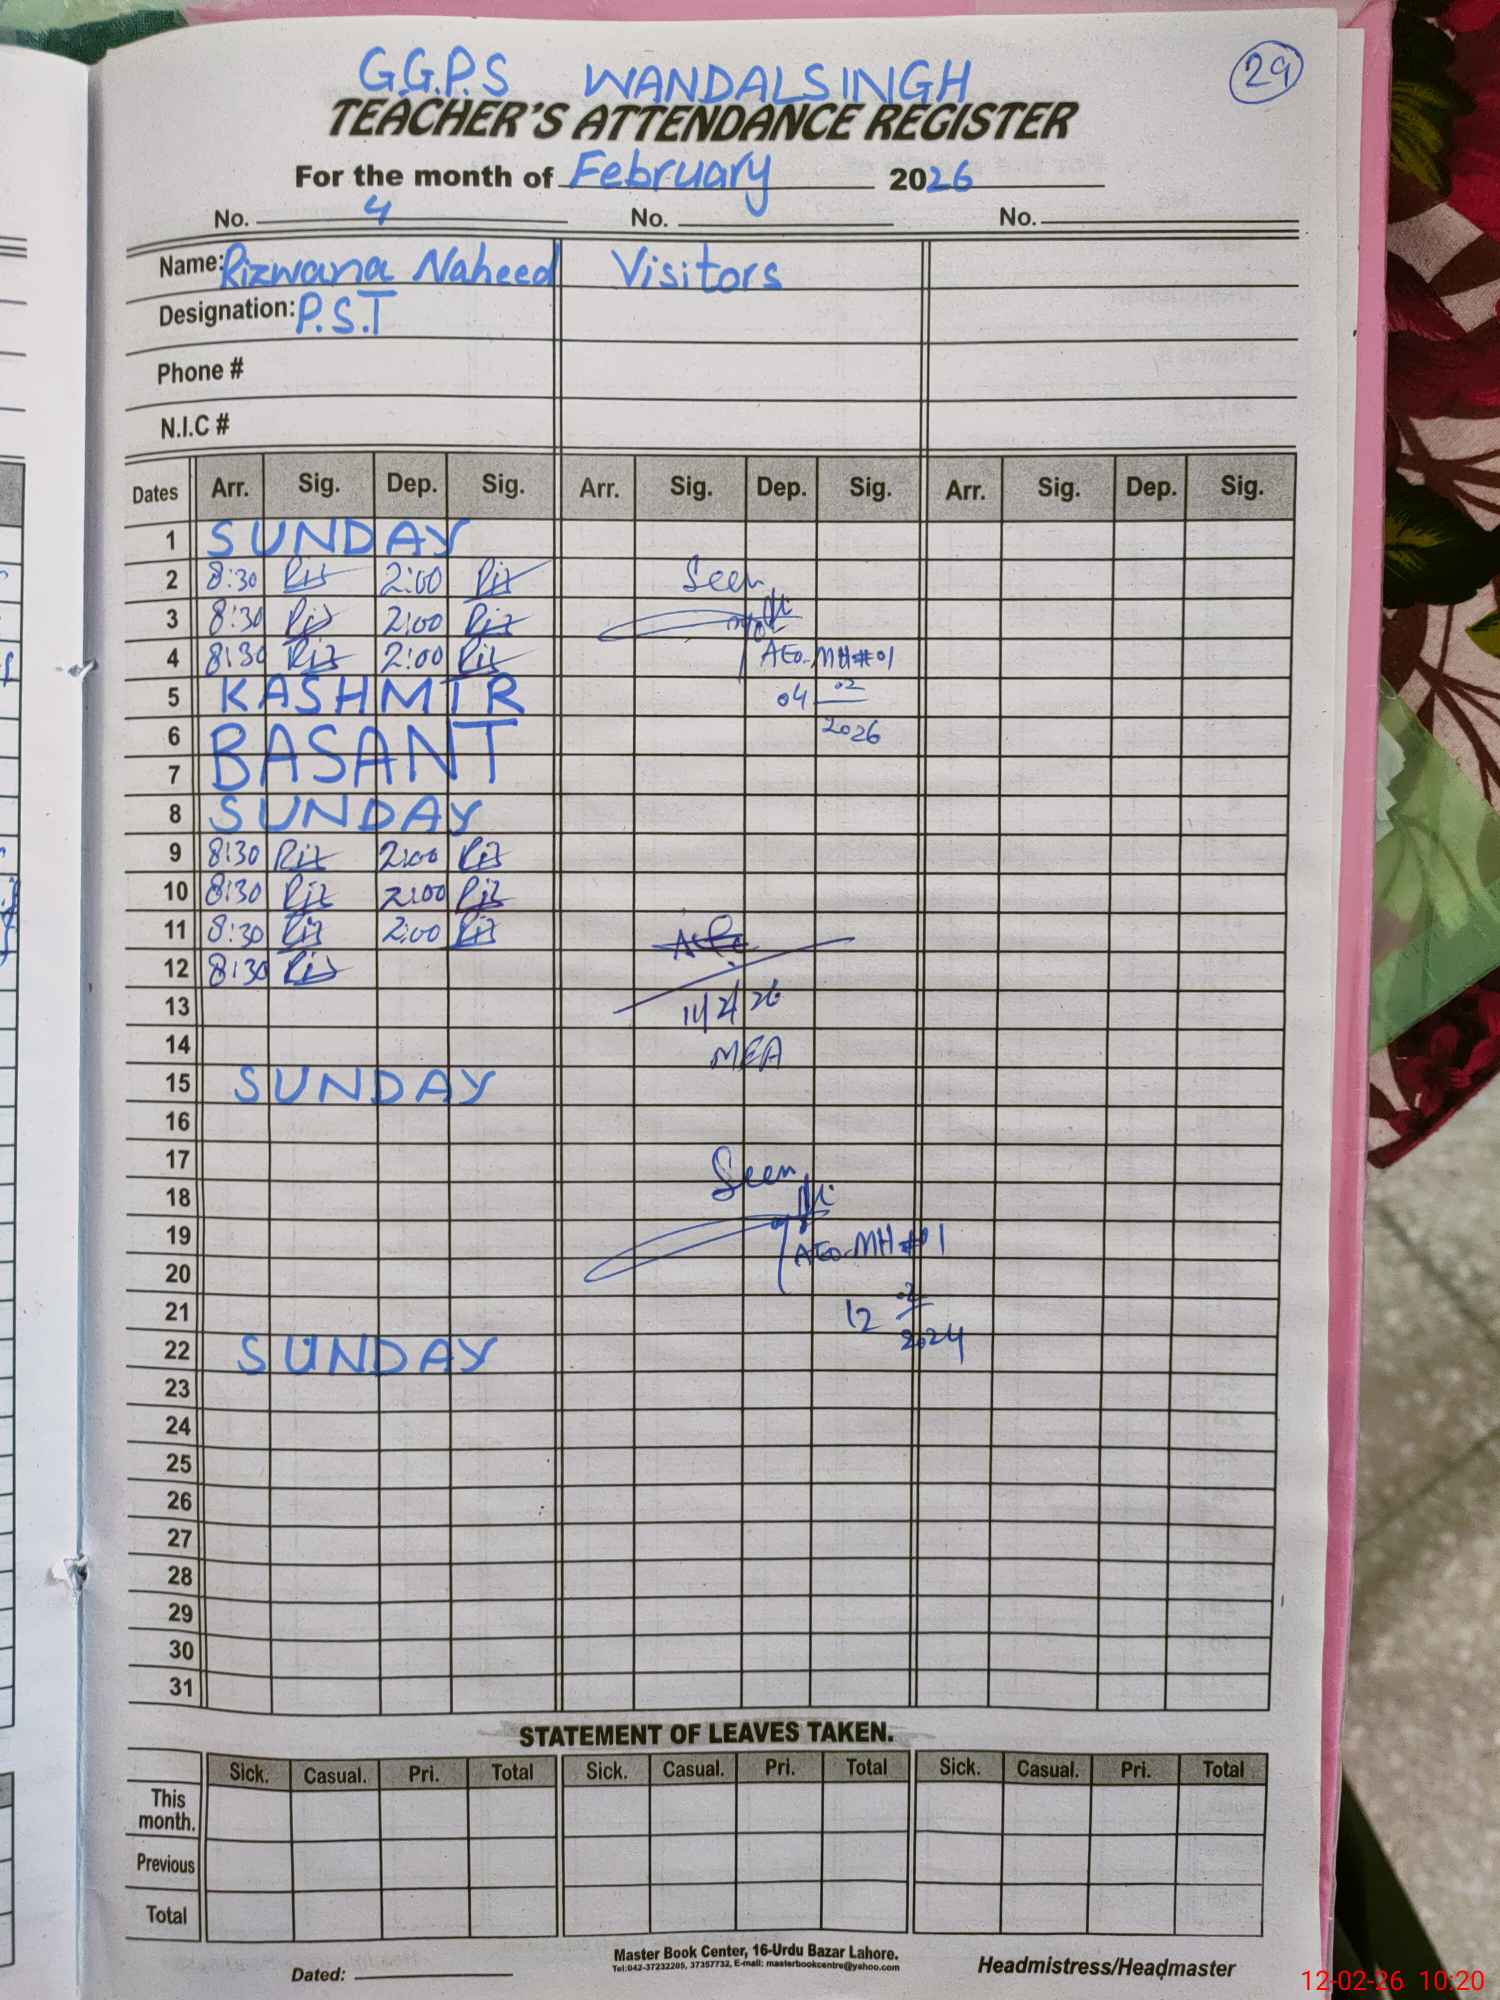 G.G.P.S WANDALSINGH
29
TEACHER'S ATTENDANCE REGISTER
For the month of February 2026
No. 4 No. No.
Name: Rizwana Naheed Visitors
Designation: P.S.T
Phone #
N.I.C #
Dates Arr. Sig. Dep. Sig. Arr. Sig. Dep. Sig. Arr. Sig. Dep. Sig.
1 SUNDAY
2 8:30 Riz 2:00 Riz Seen
3 8:30 Riz 2:00 Riz
4 8:30 Riz 2:00 Riz AEO-MH#01
5 KASHMIR 04 02
6 BASANT 2026
7
8 SUNDAY
9 8:30 Riz 2:00 Riz
10 8:30 Riz 2:00 Riz
11 8:30 Riz 2:00 Riz
12 8:30 Riz
13 11/2/26
14 MEA
15 SUNDAY
16
17 Seen
18
19 AEO-MH#01
20
21 12 02
22 SUNDAY 2024
23
24
25
26
27
28
29
30
31
STATEMENT OF LEAVES TAKEN.
Sick. Casual. Pri. Total Sick. Casual. Pri. Total Sick. Casual. Pri. Total
This month.
Previous
Total
Dated:
Master Book Center, 16-Urdu Bazar Lahore.
Tel:042-37232205, 37357732, E-mail: masterbookcentre@yahoo.com
Headmistress/Headmaster
12-02-26 10:20